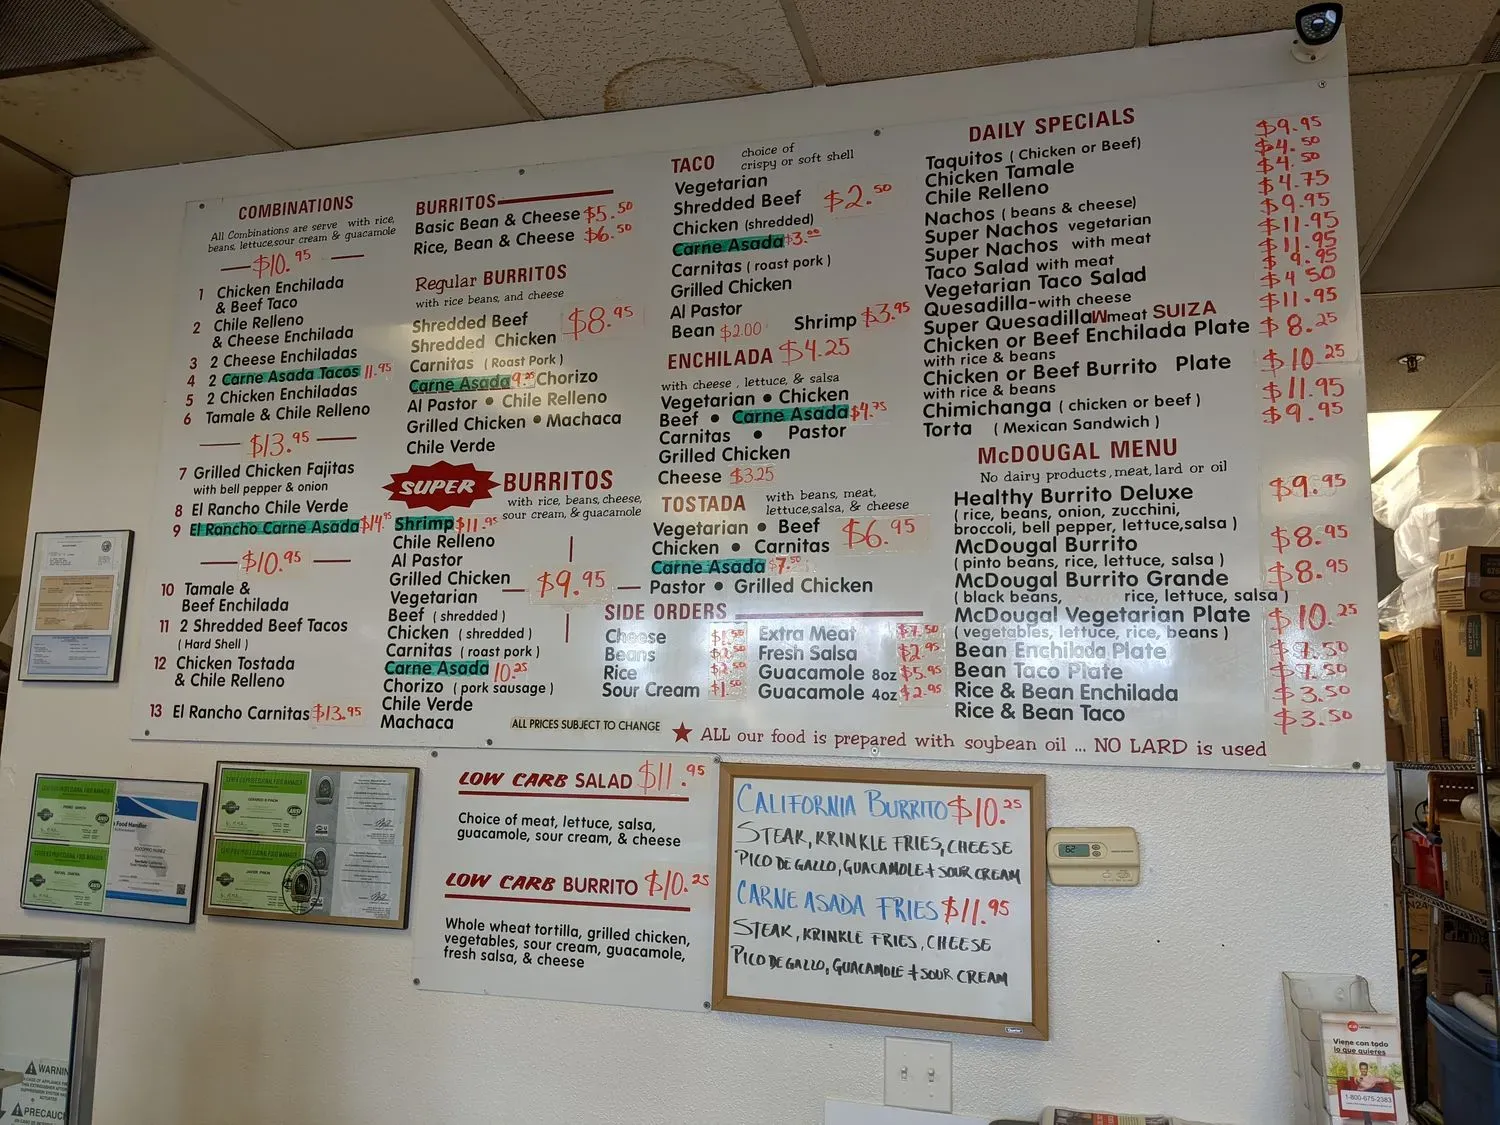 COMBINATIONS
All Combinations are serve with rice,
beans, lettuce,sour cream & guacamole
$10.95
1 Chicken Enchilada
& Beef Taco
2 Chile Relleno
& Cheese Enchilada
3 2 Cheese Enchiladas
4 2 Carne Asada Tacos 11.95
5 2 Chicken Enchiladas
6 Tamale & Chile Relleno
$13.95
7 Grilled Chicken Fajitas
with bell pepper & onion
8 El Rancho Chile Verde
9 El Rancho Carne Asada $14.95
$10.95
10 Tamale &
Beef Enchilada
11 2 Shredded Beef Tacos
(Hard Shell)
12 Chicken Tostada
& Chile Relleno
13 El Rancho Carnitas $13.95
BURRITOS
Basic Bean & Cheese $5.50
Rice, Bean & Cheese $6.50
Regular BURRITOS
with rice beans, and cheese
Shredded Beef $8.95
Shredded Chicken
Carnitas (Roast Pork)
Carne Asada 9.25 Chorizo
Al Pastor • Chile Relleno
Grilled Chicken • Machaca
Chile Verde
SUPER BURRITOS
with rice, beans, cheese,
sour cream, & guacamole
Shrimp $11.95
Chile Relleno
Al Pastor
Grilled Chicken
Vegetarian $9.95
Beef (shredded)
Chicken (shredded)
Carnitas (roast pork)
Carne Asada 10.25
Chorizo (pork sausage)
Chile Verde
Machaca
TACO choice of
crispy or soft shell
Vegetarian
Shredded Beef $2.50
Chicken (shredded)
Carne Asada $3.00
Carnitas (roast pork)
Grilled Chicken
Al Pastor
Bean $2.00 Shrimp $3.95
ENCHILADA $4.25
with cheese, lettuce, & salsa
Vegetarian • Chicken
Beef • Carne Asada $4.75
Carnitas • Pastor
Grilled Chicken
Cheese $3.25
TOSTADA with beans, meat,
lettuce,salsa, & cheese
Vegetarian • Beef $6.95
Chicken • Carnitas
Carne Asada $7.50
Pastor • Grilled Chicken
SIDE ORDERS
Cheese $1.50
Beans
Rice
Sour Cream $1.50
Extra Meat
Fresh Salsa $2.95
Guacamole 8oz $5.95
Guacamole 4oz $2.95
ALL PRICES SUBJECT TO CHANGE
★ ALL our food is prepared with soybean oil ... NO LARD is used
DAILY SPECIALS
Taquitos (Chicken or Beef) $9.95
Chicken Tamale $4.50
Chile Relleno $4.50
Nachos (beans & cheese) $4.75
Super Nachos vegetarian $9.95
Super Nachos with meat $11.95
Taco Salad with meat $11.95
Vegetarian Taco Salad $9.95
Quesadilla-with cheese $4.50
Super Quesadilla Wmeat SUIZA $11.95
Chicken or Beef Enchilada Plate $8.25
with rice & beans
Chicken or Beef Burrito Plate $10.25
with rice & beans
Chimichanga (chicken or beef) $11.95
Torta (Mexican Sandwich) $9.95
McDOUGAL MENU
No dairy products, meat, lard or oil
Healthy Burrito Deluxe $9.95
(rice, beans, onion, zucchini,
broccoli, bell pepper, lettuce,salsa)
McDougal Burrito $8.95
(pinto beans, rice, lettuce, salsa)
McDougal Burrito Grande $8.95
(black beans, rice, lettuce, salsa)
McDougal Vegetarian Plate $10.25
(vegetables, lettuce, rice, beans)
Bean Enchilada Plate
Bean Taco Plate
Rice & Bean Enchilada $3.50
Rice & Bean Taco $3.50
LOW CARB SALAD $11.95
Choice of meat, lettuce, salsa,
guacamole, sour cream, & cheese
LOW CARB BURRITO $10.25
Whole wheat tortilla, grilled chicken,
vegetables, sour cream, guacamole,
fresh salsa, & cheese
CALIFORNIA BURRITO $10.25
STEAK, KRINKLE FRIES, CHEESE
PICO DE GALLO, GUACAMOLE + SOUR CREAM
CARNE ASADA FRIES $11.95
STEAK, KRINKLE FRIES, CHEESE
PICO DE GALLO, GUACAMOLE + SOUR CREAM
62
Viene con todo
lo que quieres
1-800-675-2383
Food Handler
WARNIN
PRECAUC